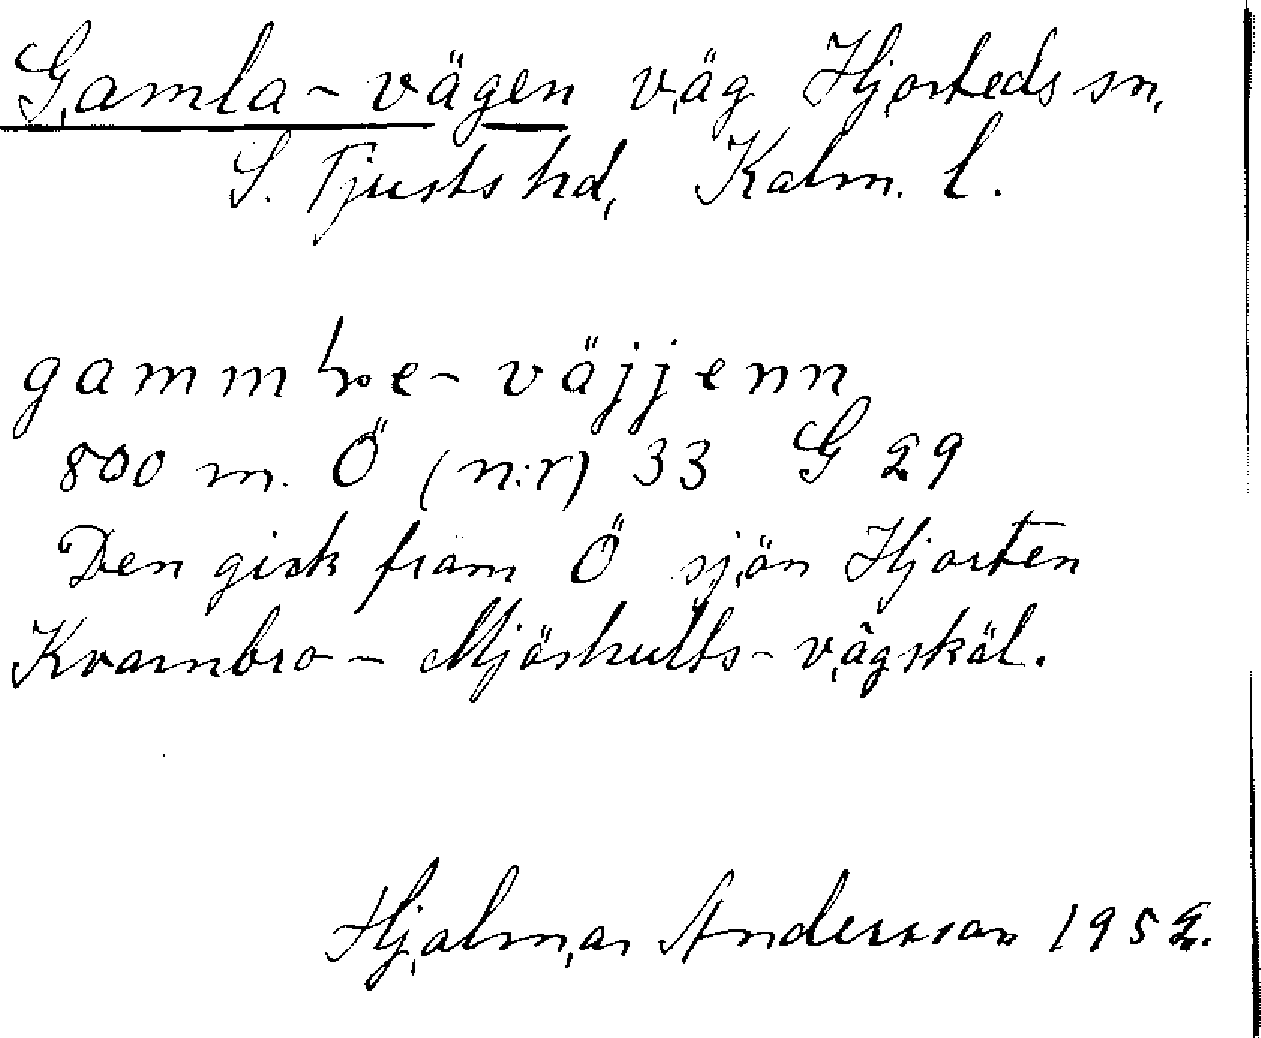 Gamla-vägen väg Hjorteds sn,
S. Tjusts hd, Kalm. l.
gammhe-väjjenn
800 m. Ö (n:r) 33 G 29
Den gick fram Ö sjön Hjorten
Kvarnbro - Mjöshults-vägskäl.
Hjalmar Andersson 1952.